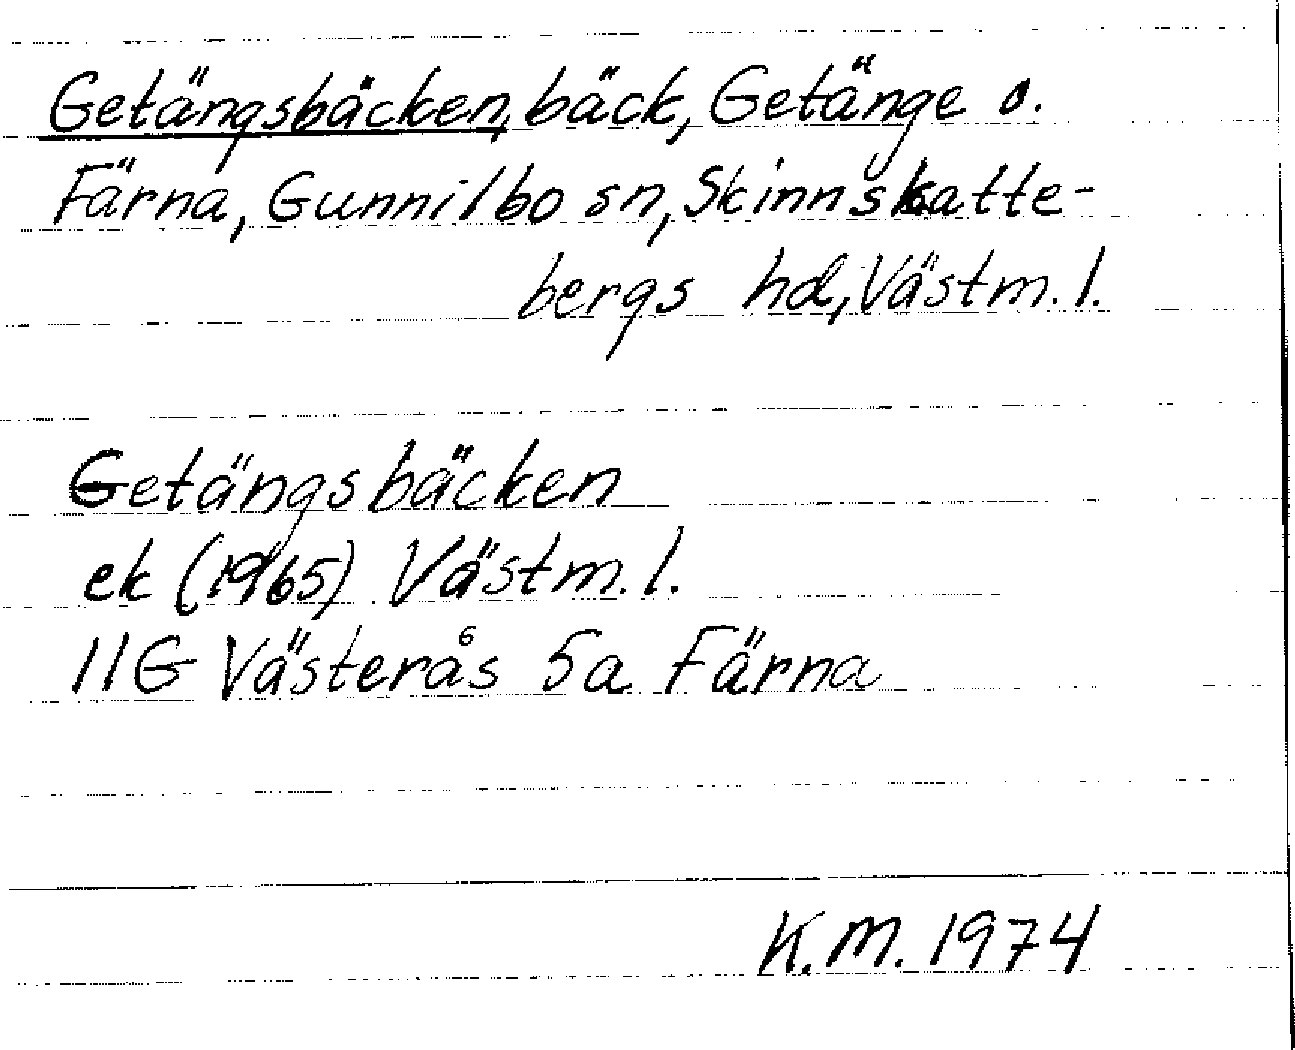 Getängsbäcken, bäck, Getänge o.
Färna, Gunnilbo sn, Skinnskatte-
bergs hd, Västm. l.
Getängsbäcken
ek (1965) Västm. l.
11G Västerås 5a Färna
K.M. 1974